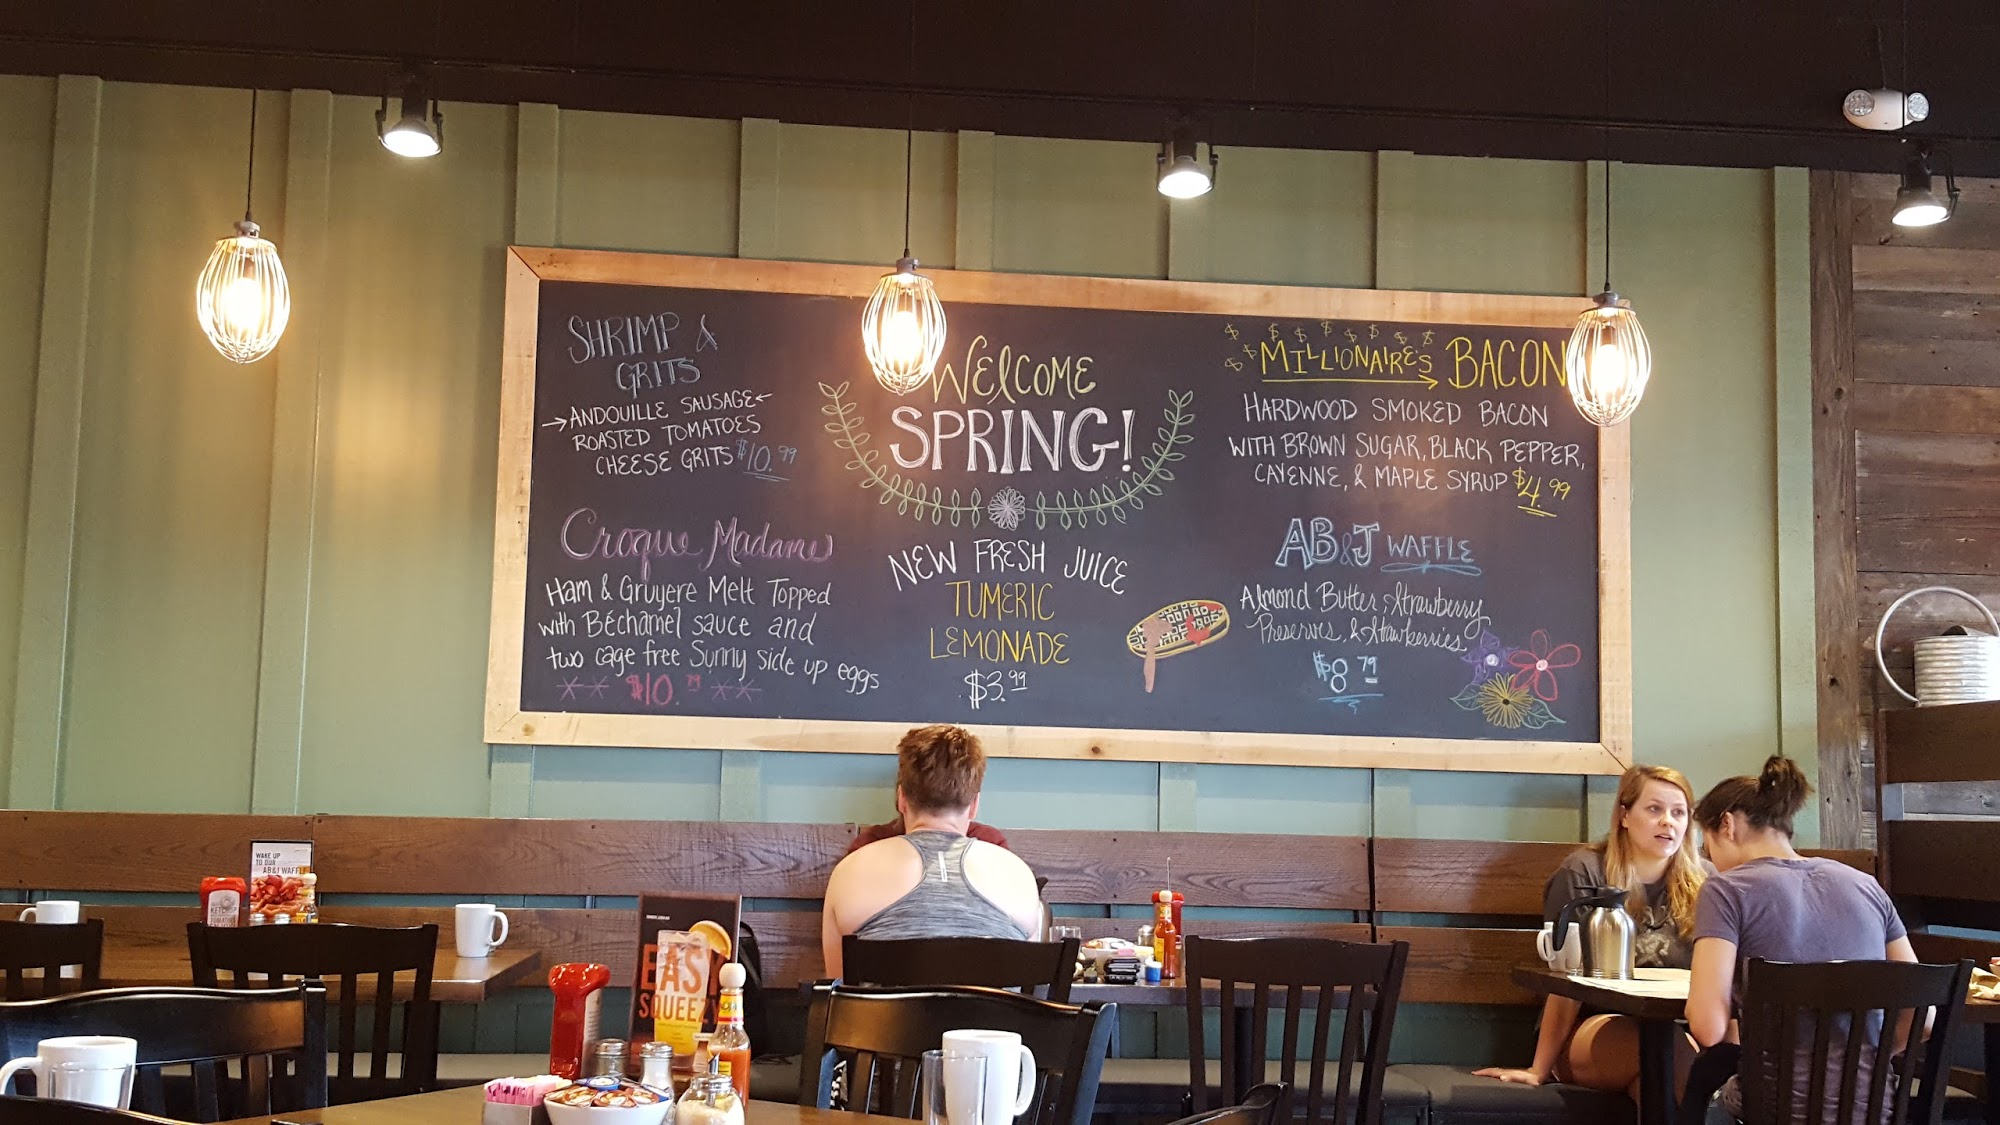 SHRIMP &
GRITS
→ANDOUILLE SAUSAGE←
ROASTED TOMATOES
CHEESE GRITS $10.99
Croque Madame
Ham & Gruyere Melt Topped
with Béchamel sauce and
two cage free Sunny side up eggs
** $10.79 **
WELCOME
SPRING!
NEW FRESH JUICE
TUMERIC
LEMONADE
$3.99
$ $ $ $ $ $ $ $
$ $ MILLIONAIRES BACON
HARDWOOD SMOKED BACON
WITH BROWN SUGAR, BLACK PEPPER,
CAYENNE, & MAPLE SYRUP $4.99
AB&J WAFFLE
Almond Butter, Strawberry
Preserves, & Strawberries
$8.79
WAKE UP
TO OUR
AB&J WAFFLE
KETCHUP
EAS
SQUEEZ